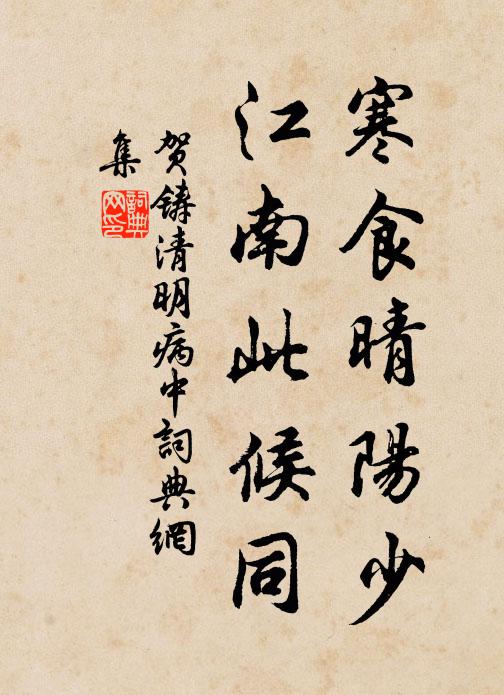 寒食晴陽少
江南此候同
賀鋳清明病中詞典網
集
詞典
网印